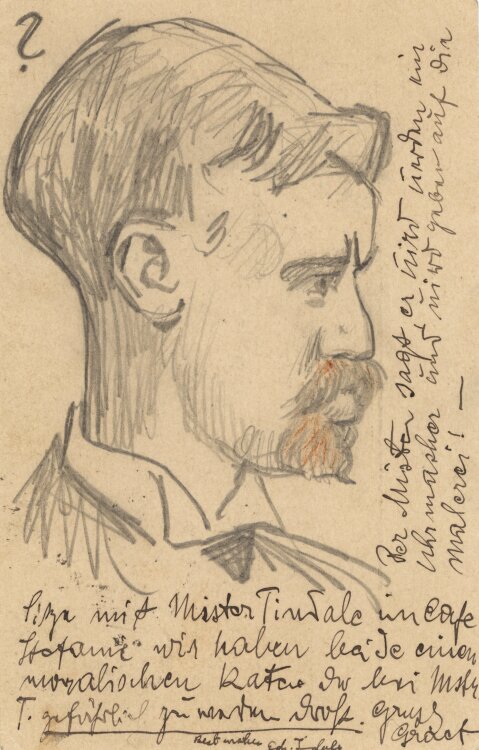 ?
Der Mister sagt er wird werden ein
Uhrmacher und wird geben auf die
Malerei! —
Sitze mit Mister Tindale im Cafe
Stefanie wir haben beide einen
moralischen Kater der bei Mister
T. gefährlich zu werden droht. Gruss
Best wishes